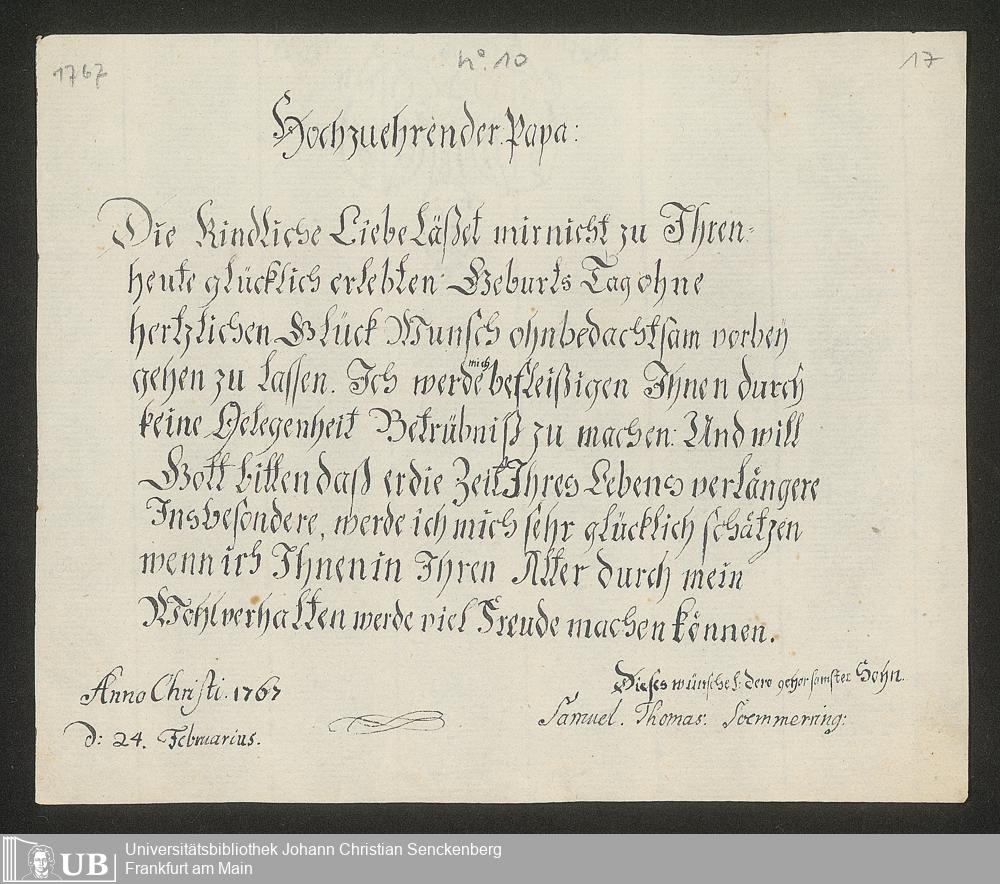 1767
No. 10
17
Hochzuehrender. Papa:
Die Kindliche Liebe läßet mir nicht zu Ihren=
heute glücklich erlebten Geburts Tag ohne
hertzlichen Glück Wunsch ohnbedachtsam vorbey
gehen zu lassen. Ich werde mich befleißigen Ihnen durch
keine Gelegenheit Betrübniß zu machen: Und will
Gott bitten daß er die Zeit Ihres Lebens verlängere
Insbesondere, werde ich mich sehr glücklich schätzen
wenn ich Ihnen in Ihren Alter durch mein
Wohlverhalten werde viel Freude machen können.
Anno Christi. 1767
d: 24. Februarius.
Dieses wünschet: dero gehorsamster Sohn.
Samuel. Thomas. Soemmerring:
UB
Universitätsbibliothek Johann Christian Senckenberg
Frankfurt am Main